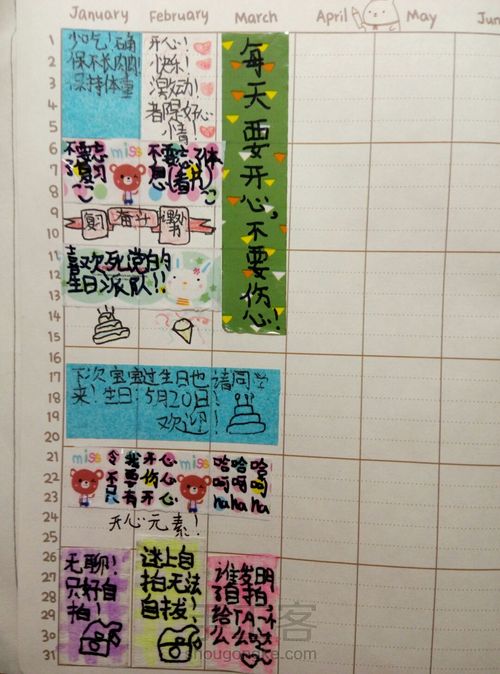 January February March April May Jun
1
2
3
4
5
6
7
8
9
10
11
12
13
14
15
16
17
18
19
20
21
22
23
24
25
26
27
28
29
30
31
少吃!确
保不长肉肉!
保持体重
开心!
快乐!
激动!
都是好心
情!
每天要开心,不要伤心!
不要忘
了复习
miss
不要忘了休
息(看片)
复习
奋斗
课外书
喜欢死党的
生日派队!!
下次宝宝过生日也请同学
来!生日:5月20日!
欢迎!
miss
令我开心
不要伤心
只有开心
miss
哈哈哈
呵呵呵
hahaha
开心元素!
无聊!
只好自
拍!
迷上自
拍无法
自拔!
谁发明
了自拍,
给TA一个
么么哒
shougongke.com